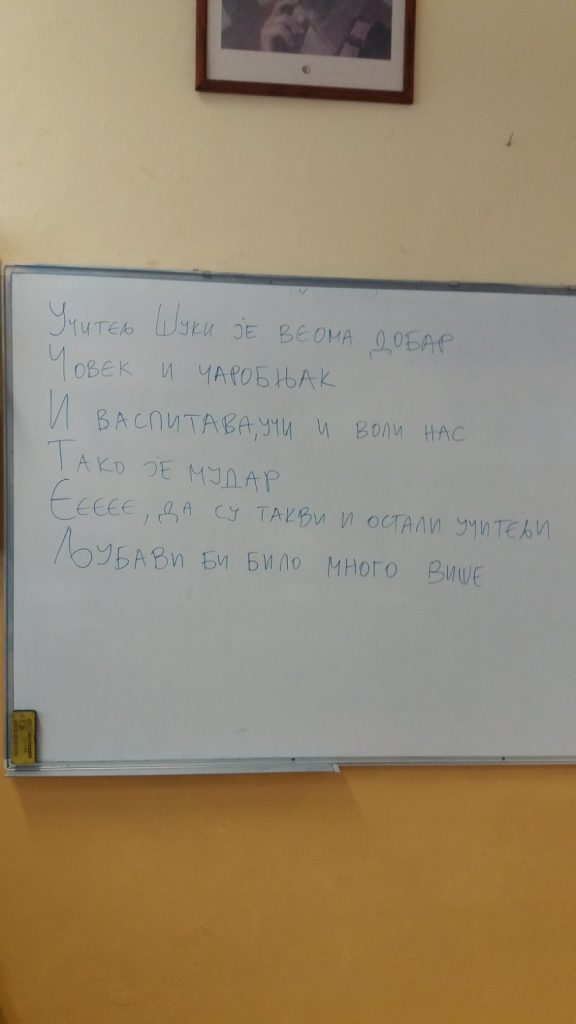 Учитељ Шуки је веома добар
Човек и чаробњак
И васпитава, учи и воли нас
Тако је мудар
Еееее, да су такви и остали учитељи
Љубави би било много више